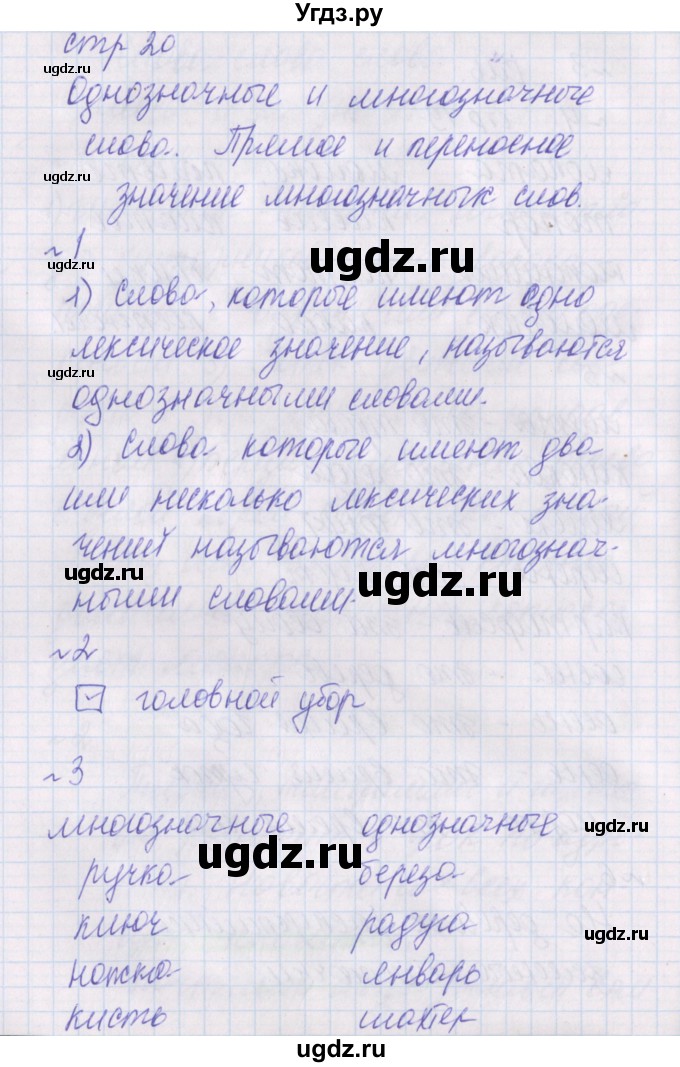 Угдз.ру
стр 20
ugdz.ru
Однозначные и многозначные
слова. Прямое и переносное
ugdz.ru
значение многозначных слов.
~1
ugdz.ru
ugdz.ru
1) Слова, которые имеют одно
лексическое значение, называются
ugdz.ru
однозначными словами.
2) Слова которые имеют два
или несколько лексических зна-
чений называются многознач-
ugdz.ru
ugdz.ru
ными словами.
~2
головной убор
~3
многозначные однозначные
ugdz.ru
ugdz.ru
ручка береза
ключ радуга
ugdz.ru
ножка январь
кисть шахтер
ugdz.ru